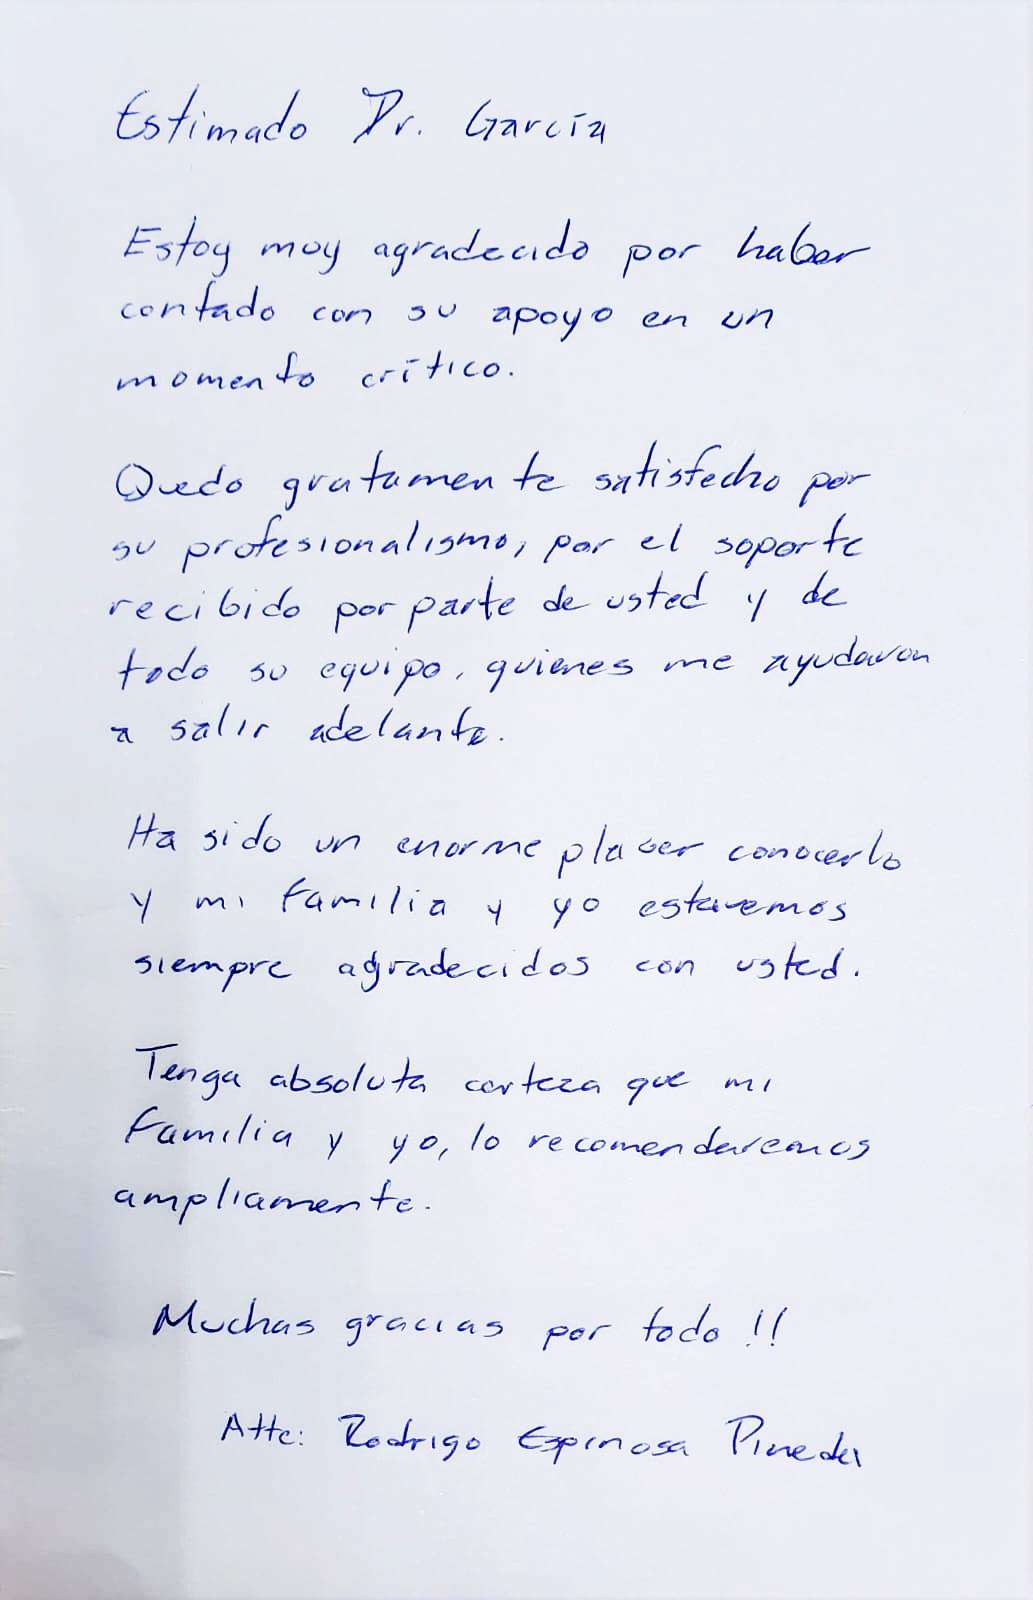 Estimado Dr. García
Estoy muy agradecido por haber
contado con su apoyo en un
momento crítico.
Quedo gratamente satisfecho por
su profesionalismo, por el soporte
recibido por parte de usted y de
todo su equipo, quienes me ayudaron
a salir adelante.
Ha sido un enorme placer conocerlo
y mi familia y yo estaremos
siempre agradecidos con usted.
Tenga absoluta certeza que mi
familia y yo, lo recomendaremos
ampliamente.
Muchas gracias por todo !!
Atte: Rodrigo Espinosa Pineda